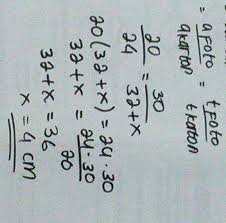 = a foto / a karton = t foto / t karton
20/24 = 30/32+x
20(32+x) = 24·30
32+x = 24·30/20
32+x = 36
x = 4 cm